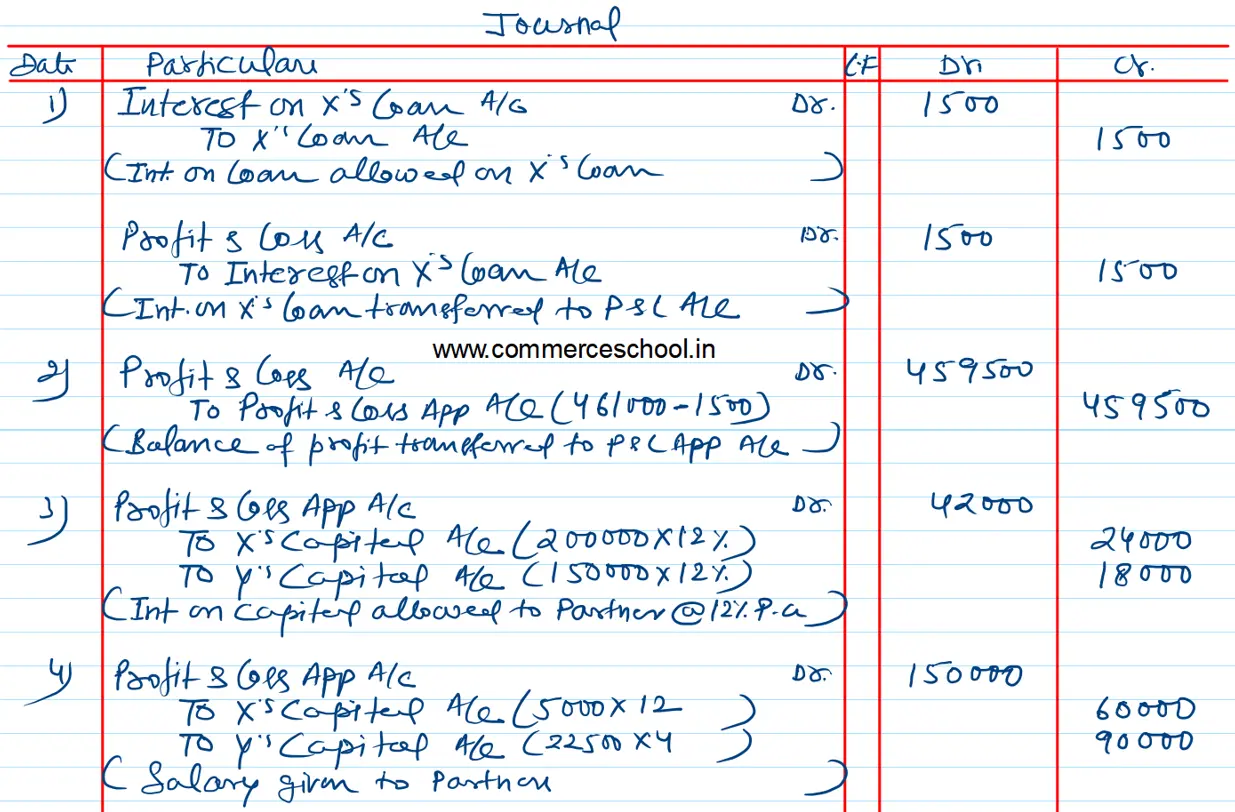 Journal
Date Particulars L.F Dr. Cr.
1) Interest on X's Loan A/c Dr. 1500
To X's Loan A/c 1500
(Int. on Loan allowed on X's Loan )
Profit & Loss A/c Dr. 1500
To Interest on X's Loan A/c 1500
(Int. on X's Loan transferred to P&L A/c )
www.commerceschool.in
2) Profit & Loss A/c Dr. 459500
To Profit & Loss App A/c (461000-1500) 459500
(Balance of profit transferred to P&L App A/c )
3) Profit & Loss App A/c Dr. 42000
To X's Capital A/c (200000X12%) 24000
To Y's Capital A/c (150000X12%) 18000
(Int on Capital allowed to Partner @12% P.a )
4) Profit & Loss App A/c Dr. 150000
To X's Capital A/c (5000X12 ) 60000
To Y's Capital A/c (22500X4 ) 90000
( Salary given to Partner )